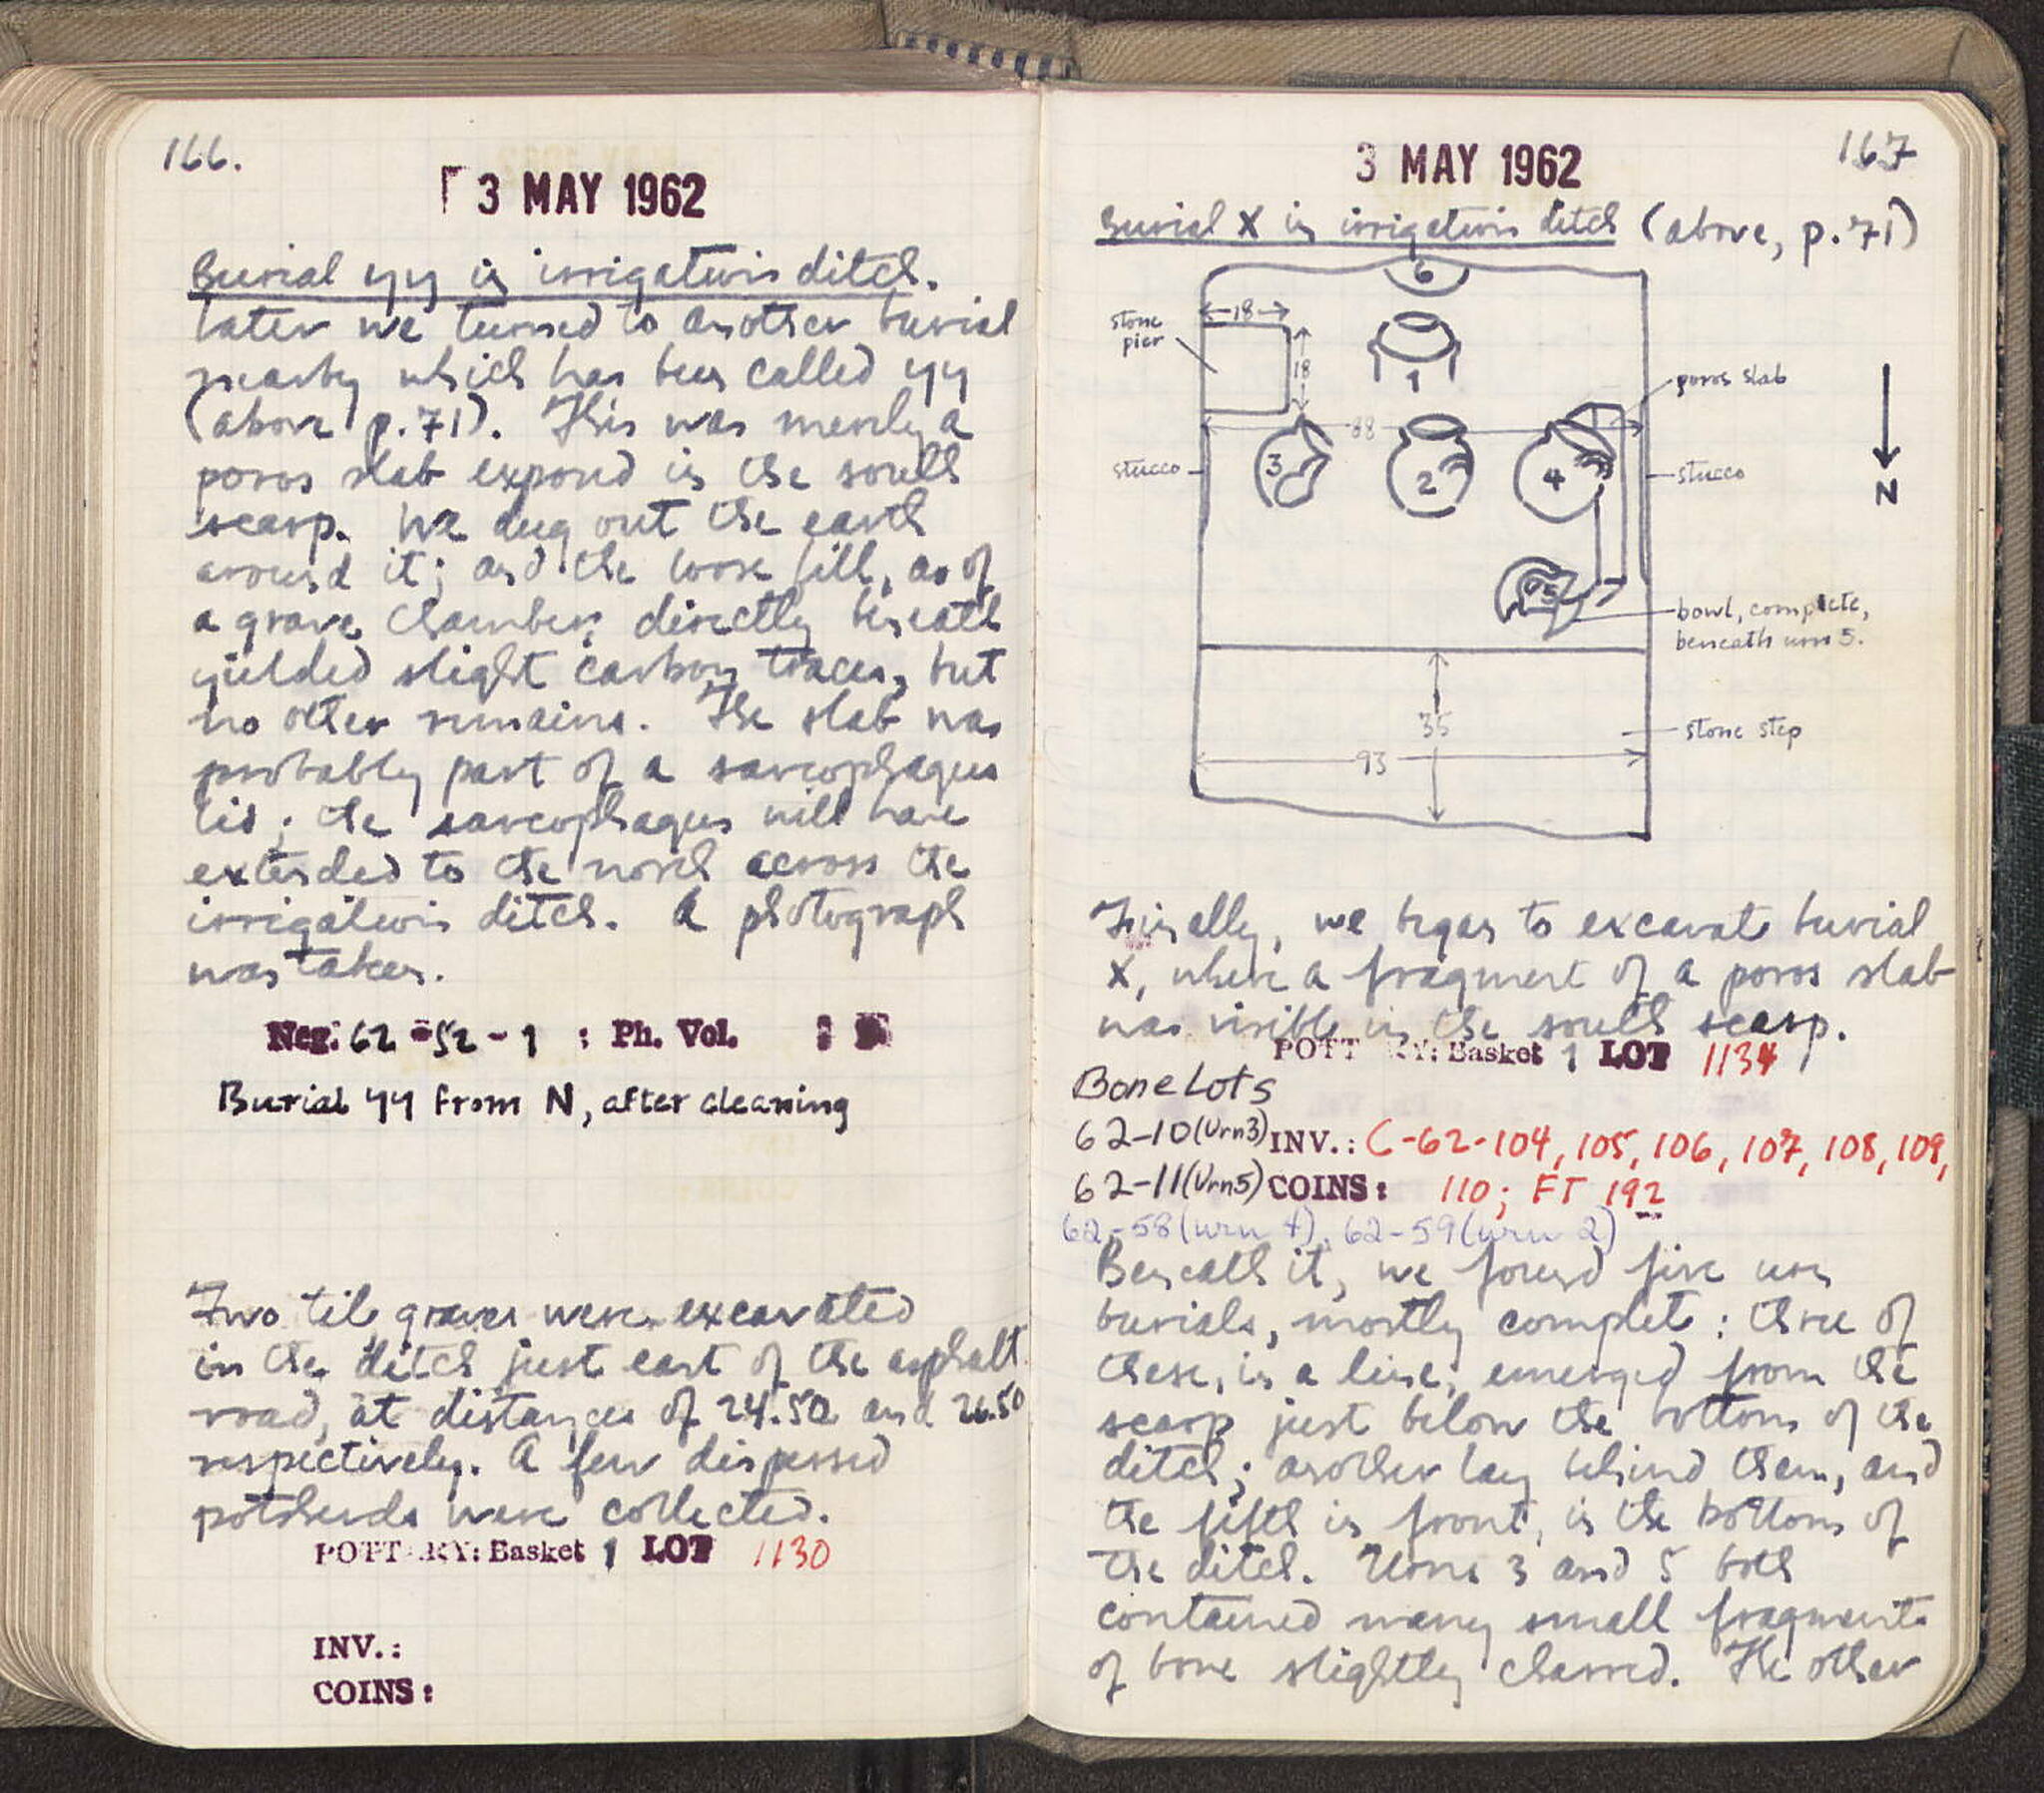 166.
3 MAY 1962
Burial yy in irrigation ditch.
Later we turned to another burial
nearby which has been called yy
(above p.71). This was merely a
poros slab exposed in the south
scarp. We dug out the earth
around it; and the loose fill, as of
a grave chamber, directly beneath
yielded slight carbon traces, but
no other remains. The slab was
probably part of a sarcophagus
lid; the sarcophagus will have
extended to the north across the
irrigation ditch. A photograph
was taken.
Neg. 62-52-1 : Ph. Vol. :
Burial yy from N, after cleaning
Two tile graves were excavated
in the ditch just east of the asphalt
road, at distances of 24.50 and 26.50
respectively. A few dispersed
potsherds were collected.
POTTERY: Basket 1 LOT 1130
INV.:
COINS:
167
3 MAY 1962
Burial X in irrigation ditch (above, p.71)
6
18
stone
pier
18
1
poros slab
88
stucco
3
2
4
stucco
N
5
bowl, complete,
beneath urn 5.
35
stone step
93
Finally, we began to excavate burial
X, where a fragment of a poros slab
was visible in the south scarp.
POTTERY: Basket 1 LOT 1134
Bone Lots
62-10 (Urn3) INV.: C-62-104, 105, 106, 107, 108, 109,
62-11 (Urn5) COINS: 110; FT 192
62-58 (urn 4), 62-59 (urn 2)
Beneath it, we found five urn
burials, mostly complete: three of
these, in a line, emerged from the
scarp just below the bottom of the
ditch; another lay behind them, and
the fifth in front, in the bottom of
the ditch. Urns 3 and 5 both
contained many small fragments
of bone slightly charred. The other